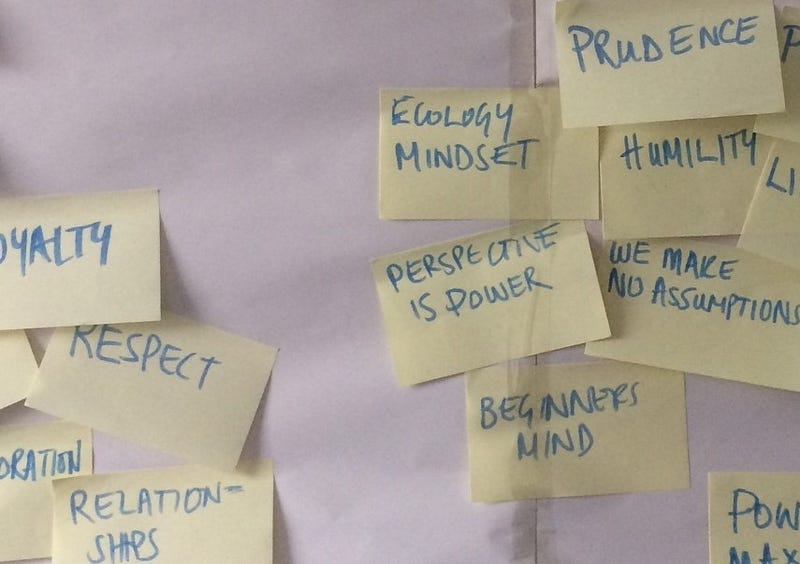 PRUDENCE
P
ECOLOGY
MINDSET
HUMILITY
LI
OYALTY
PERSPECTIVE
IS POWER
WE MAKE
NO ASSUMPTIONS
RESPECT
BEGINNERS
MIND
ORATION
RELATION-
SHIPS
POW
MAX